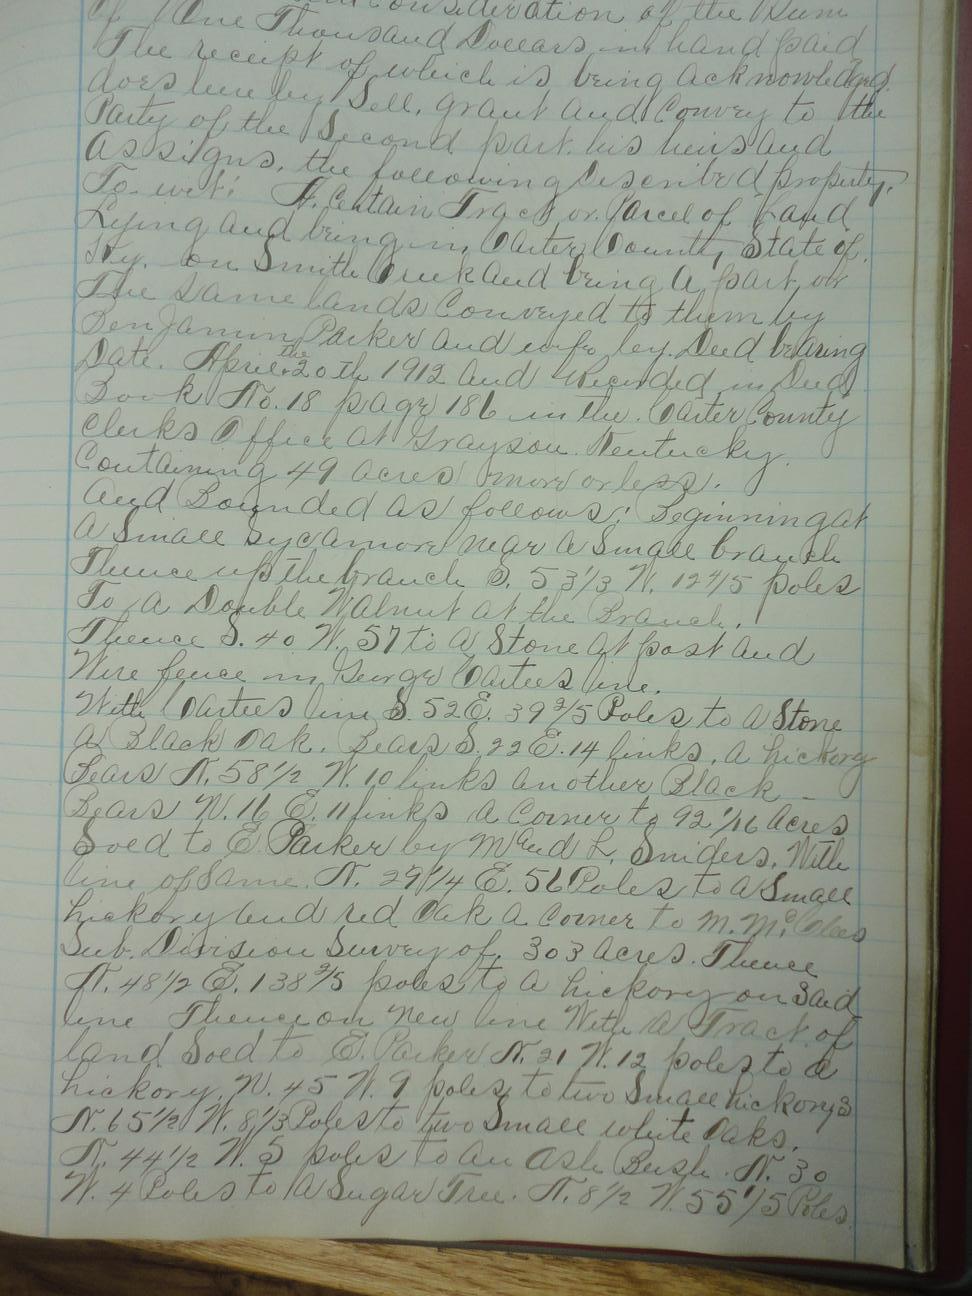 Consideration of the Sum
of One Thousand Dollars in hand paid
The receipt of which is being acknowledged.
does hereby Sell, grant and Convey to the
Party of the Second part. his heirs and
assigns. the following Described property,
To. wit: A. Certain Tract or. Parcel of Land
Lying and being in. Carter County, State of.
Ky. on Smith Creek and being a part, or
The same lands Conveyed to them by
Benjamin Parker and wife by. Deed bearing
Date. April the 20th 1912 and Recorded in Deed
Book No. 18 page 186 in the. Carter County
Clerks Office at Grayson. Kentucky.
Containing 49 acres more or less.
And Bounded as follows: Beginning at
a Small sycamore near a Small branch
Thence up the branch S. 53 1/3 W. 12 4/5 poles
To a Double Walnut at the Branch.
Thence S. 40 W. 57 to a Stone at post and
Wire fence in George line.
With line S. 52 E. 39 2/5 Poles to a Stone
a Black Oak. Bears S. 22 E. 14 links. a hickory
Bears N. 58 1/2 W. 10 links another Black
Bears N. 16 E. 11 links a Corner to 92 1/16 acres
Soed to E. Parker by M and L. Sniders. With
line of Same. N. 29 1/4 E. 56 Poles to a Small
hickory and red Oak a Corner to M.
Sub. Division Survey of. 303 acres. Thence
N. 48 1/2 E. 138 2/5 poles to a hickory on Said
line Thence on new line With a Tract of
land Soed to E. Parker N. 21 W. 12 poles to a
hickory. N. 45 W. 9 poles to two Small hickorys
N. 65 1/2 W. 8 1/3 Poles to two Small white Oaks.
N. 44 1/2 W. 5 poles to an Ash Bush. N. 30
W. 4 Poles to a Sugar Tree. N. 8 1/2 W. 55 1/5 Poles.